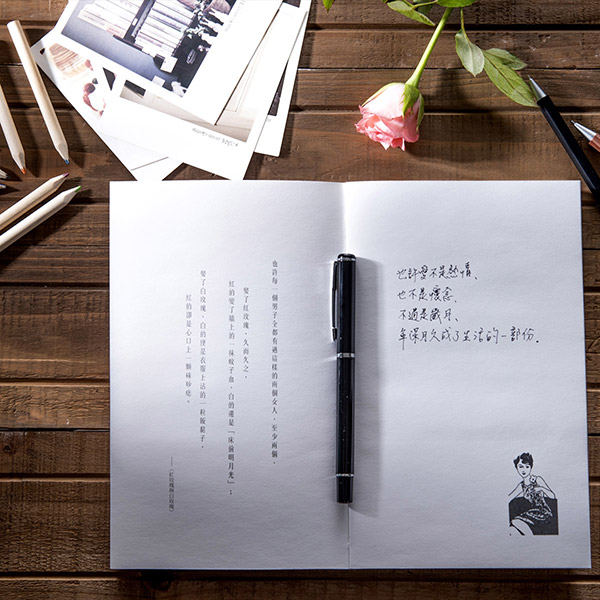 也許每一個男子全都有過這樣的兩個女人，至少兩個。
娶了紅玫瑰，久而久之，
紅的變了牆上的一抹蚊子血，白的還是「床前明月光」；
娶了白玫瑰，白的便是衣服上沾的一粒飯黏子，
紅的卻是心口上一顆硃砂痣。
——《紅玫瑰與白玫瑰》
也許愛不是熱情、
也不是懷念、
不過是歲月、
年深月久成了生活的一部份.